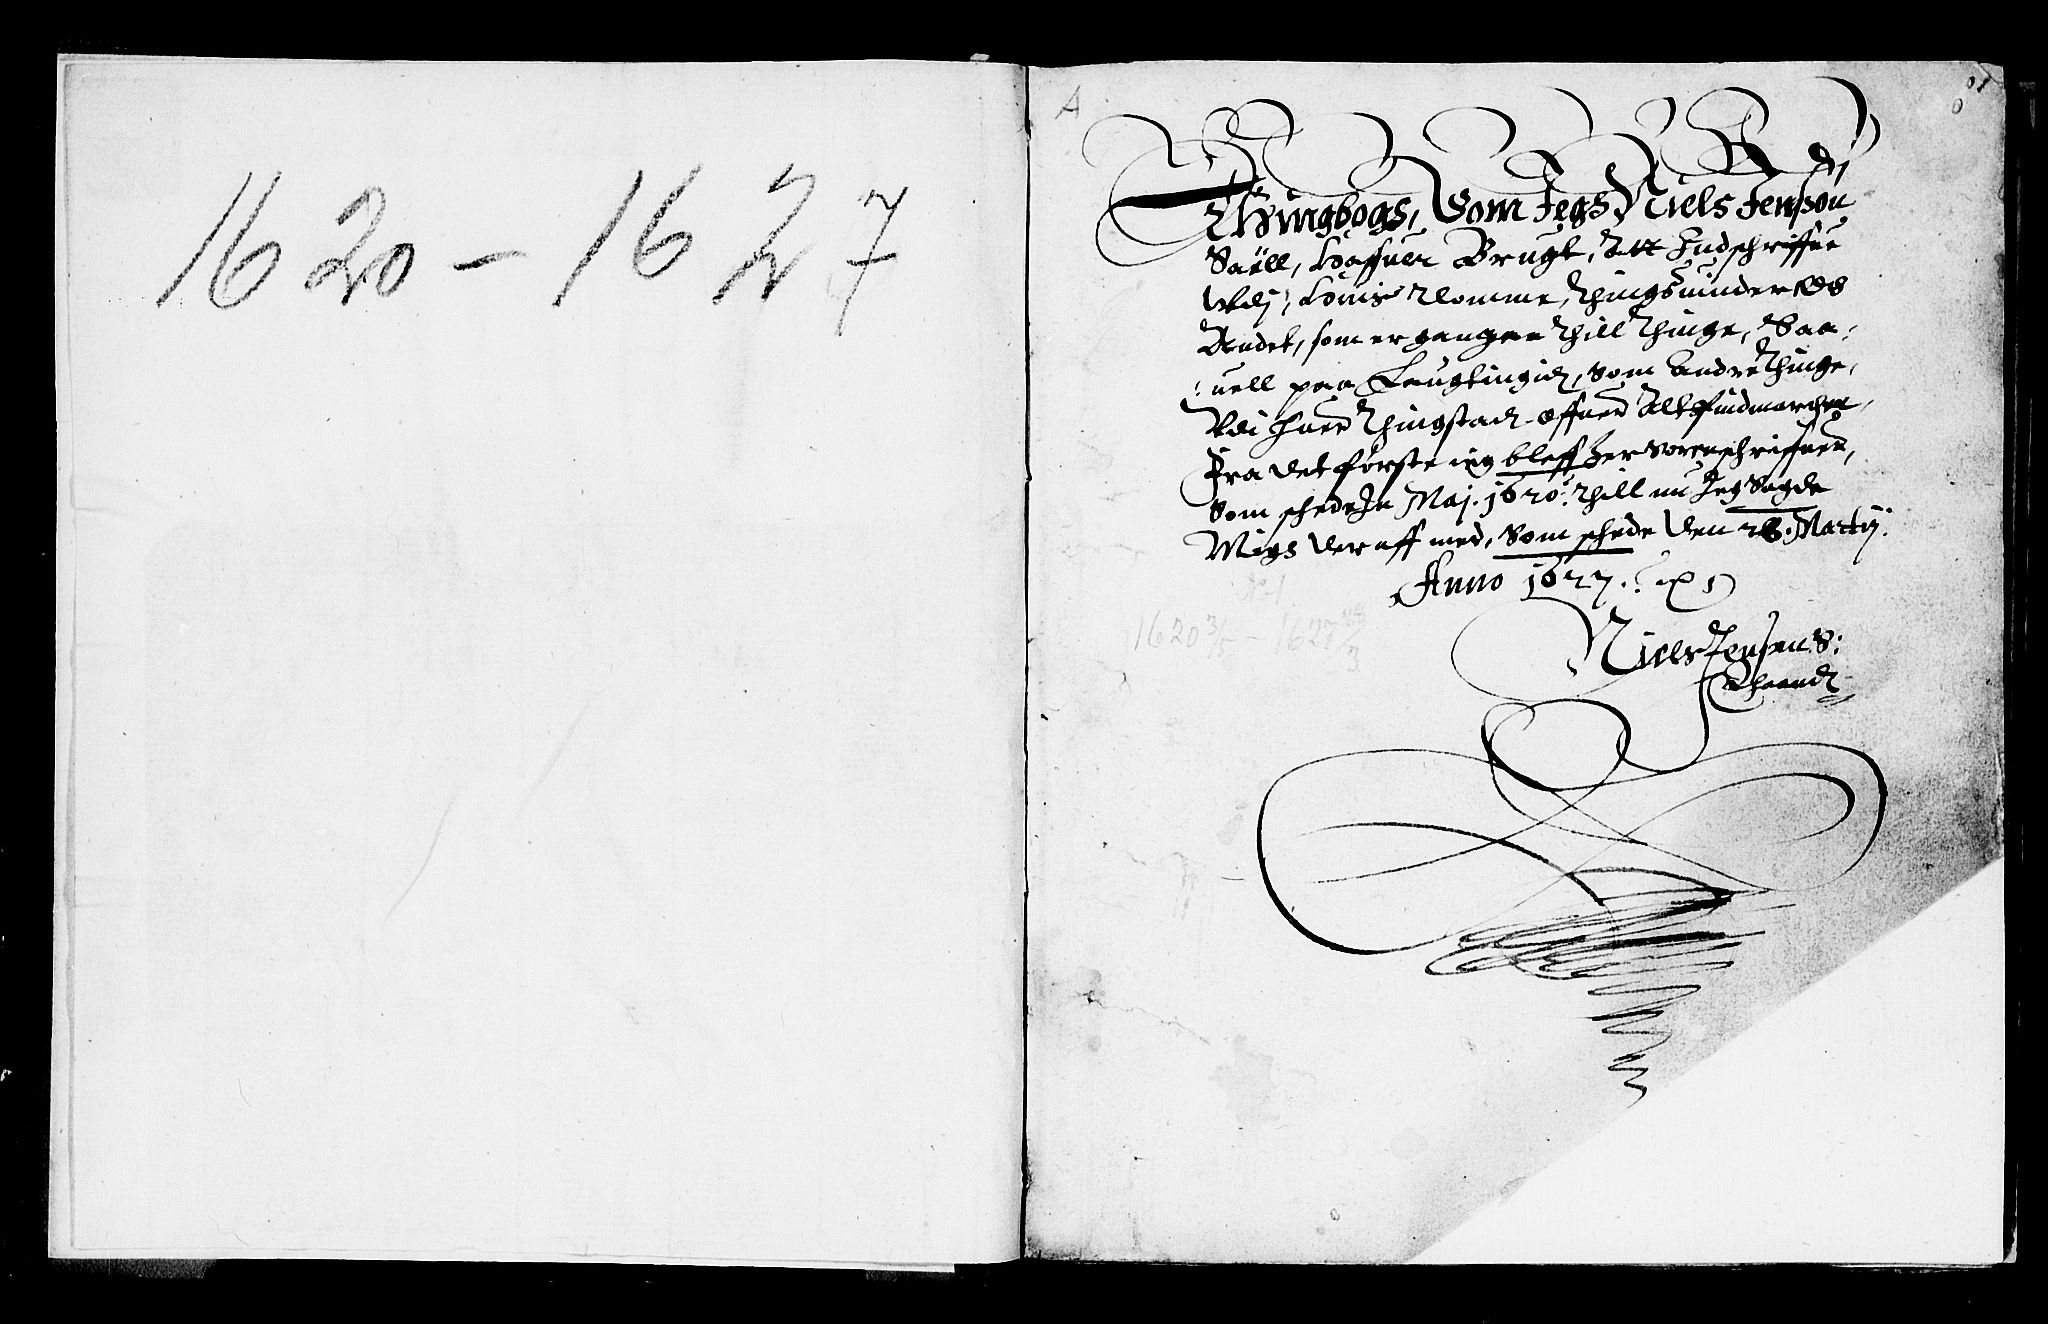 1620 - 1627
A
Thingbogs, Som Jegs Niels Jensøn
Saëll, Haffuer Brugt, Att Indschriffue
Vdj, Huis Domme, Thingsuinder Og
Andet, som er gangen Thill Thinge, Saa,
uell paa Laugtingid, Som Andre Thinge,
Vdi huer Thingstad offuer Alt Findmarchen,
Fra det første ieg bleff her Sorenschriffuer,
Som schede In Maj. 1620. Thill nu Jeg Sagde
Migs der aff med, Som schede den 28. Martij.
Anno 1627.
No 1
1620 3/5 - 1627 28/3
Niels Jensen S:
Eghaand